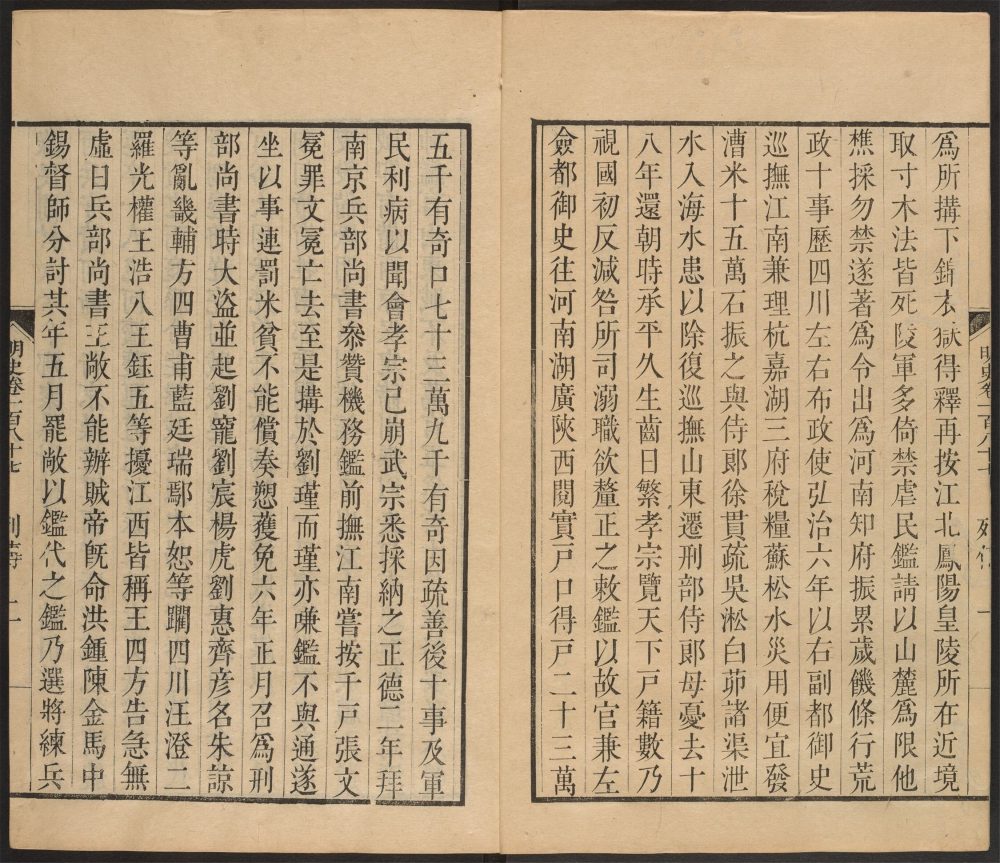 爲所搆下錦衣獄得釋再按江北鳳陽皇陵所在近境
取寸木法皆死陵軍多倚禁虐民鑑請以山麓爲限他
樵採勿禁遂著爲令出爲河南知府振累歲饑條行荒
政十事歷四川左右布政使弘治六年以右副都御史
巡撫江南兼理杭嘉湖三府稅糧蘇松水災用便宜發
漕米十五萬石振之與侍郞徐貫疏吳淞白茆諸渠泄
水入海水患以除復巡撫山東遷刑部侍郞母憂去十
八年還朝時承平久生齒日繁孝宗覽天下戶籍數乃
視國初反減咎所司溺職欲釐正之敕鑑以故官兼左
僉都御史往河南湖廣陝西閱實戶口得戶二十三萬
五千有奇口七十三萬九千有奇因疏善後十事及軍
民利病以聞會孝宗已崩武宗悉採納之正德二年拜
南京兵部尚書參贊機務鑑前撫江南嘗按千戶張文
冕罪文冕亡去至是搆於劉瑾而瑾亦嗛鑑不與通遂
坐以事連罰米貧不能償奏愬獲免六年正月召爲刑
部尚書時大盜並起劉寵劉宸楊虎劉惠齊彥名朱諒
等亂畿輔方四曹甫藍廷瑞鄢本恕等躙四川汪澄二
羅光權王浩八王鈺五等擾江西皆稱王四方告急無
虛日兵部尚書王敞不能辦賊帝旣命洪鍾陳金馬中
錫督師分討其年五月罷敞以鑑代之鑑乃選將練兵
明史卷一百八十七 列傳 二